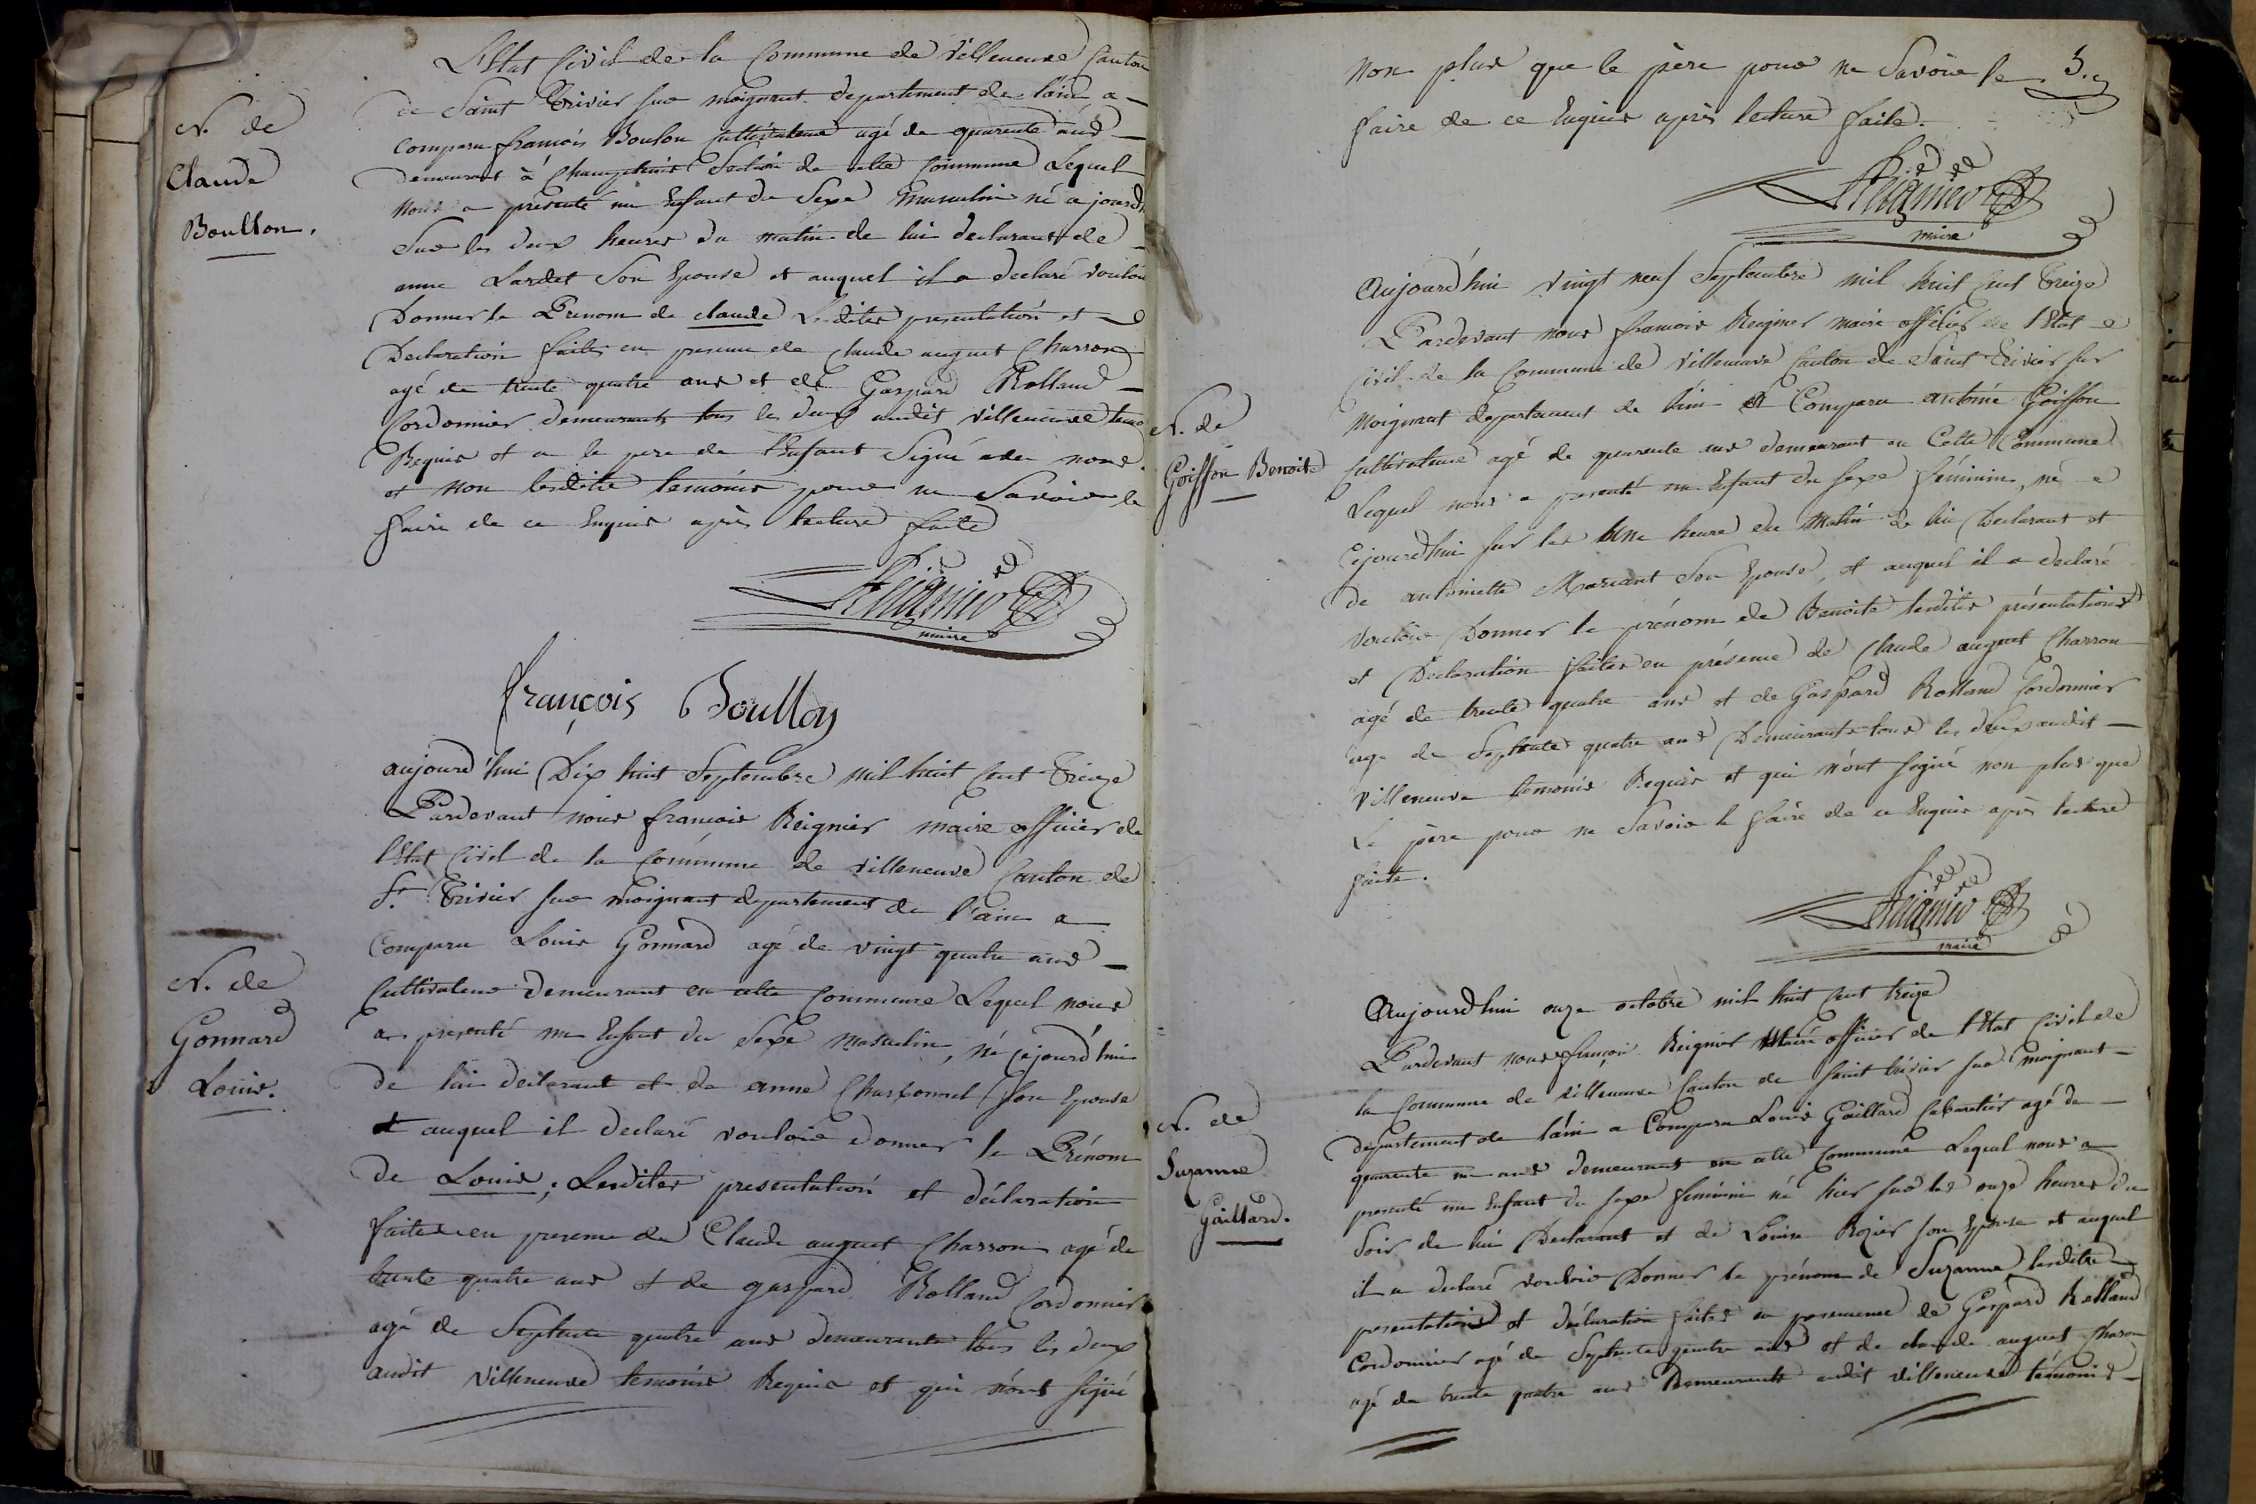 L'Etat Civil de la Commune de Villeneuve Canton
de Saint Trivier sur moignant departement de l'ain a
comparu francois Boulon Cultivateur agé de quarente ans
demeurant à Section de cette Commune Lequel
nous a présenté un Enfant du Sexe masculin né ajourd
Sur les deux heures du matin de lui declarant de
anne Lardet Son Epouse et auquel il a declaré vouloir
Donner le Prenom de claude Lesdites presentation et
Declaration faites en presence de Claude auguet Charron
agé de trente quatre ans et de Gaspard Rolland
Cordonnier demeurants tous les deux audit Villeneuve temo
Requis et a le pere de l'Enfant Signé avec nous
et Non lesdits temoins pour ne Savoir le
faire de ce Enquis après lecture faite
Reignier
maire
françois Boullon
N. de
Claude
Boullon.
aujourd'hui Dix huit Septembre mil huit Cent Treize
Pardevant nous francois Reignier maire officier de
l'Etat Civil de la Commune de villeneuve Canton de
St Trivier sur moignant departement de l'ain a
Comparu Louis Gonnard agé de vingt quatre ans
Cultivateur demeurant en cette Commune Lequel nous
a presenté un Enfant du Sexe masculin, né cejourd'hui
de lui declarant et de anne Charbonnel Son Epouse
et auquel il declaré vouloir donner le Prénom
de Louis, Lesdites presentation et déclaration
faites en presence de Claude auguet Charron agé de
trente quatre ans et de gaspard Rolland Cordonnier
agé de Septente quatre ans demeurants tous les deux
audit Villeneuve temoins Requis et qui n'ont signé
N. de
Gonnard
Louis.
5.
Non plus que le père pour ne Savoir le
faire de ce Enquis après lecture faite.
Reignier
maire
Aujourd'hui vingt neuf Septembre mil huit Cent Treize
Pardevant nous francois Reignier maire officier de l'Etat
Civil de la Commune de Villeneuve Canton de Saint Trivier sur
Moignant departement de l'ain a Comparu antoine Goiffon
Cultivateur agé de quarente ans demeurant en Cette Commune
Lequel nous a presenté un Enfant du sexe féminin, né
Cejourd'hui sur les une heure du Matin de lui Declarant et
de antoinette Son Epouse, et auquel il a declaré
Vouloir Donner le prénom de Benoite lesdites présentations
et Declaration faites en présence de Claude auguet Charron
agé de trente quatre ans et de Gaspard Rolland Cordonnier
age de Septente quatre ans Demeurants tous les deux audit
Villeneuve temoins Requis et qui n'ont signé non plus que
Le père pour ne Savoir le faire de ce Enquis après lecture
faite.
Reignier
maire
N. de
Goiffon Benoite
Aujourd'hui onze octobre mil huit Cent treize
Pardevant nous françois Reignier Maire officier de l'Etat Civil de
la Commune de villeneuve Canton de Saint trivier sur moignant
departement de l'ain a Comparu Louis Gaillard Cabaretier agé de
quarente un ans demeurant en cette Commune Lequel nous a
presenté un Enfant du sexe feminin né hier sur les onze heures du
Soir de lui Declarant et de Louise Rozier son Epouse et auquel
il a declaré vouloir Donner le prénom de Suzanne lesdites
presentations et déclaration faites en presence de Gaspard Rolland
Cordonnier agé de Septente quatre ans et de claude auguet Charon
agé de trente quatre ans Demeurants audit Villeneuve témoins
N. de
Suzanne
Gaillard.